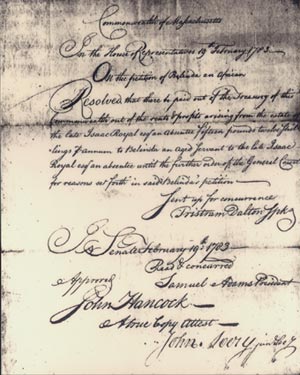 Commonwealth of Massachusetts
In the House of Representatives 19th February 1783
On the petition of Belinda an African
Resolved that there be paid out of the Treasury of this
Commonwealth out of the rents & profits arising from the estate of
the late Isaac Royal esqr an absentee fifteen pounds twelve shil-
lings & annum to Belinda an aged servant to the late Isaac
Royal esqr an absentee until the further order of the General Court
for reasons set forth in said Belinda's petition—
Sent up for concurrence
Tristram Dalton Spkr
In Senate February 19th 1783
Read & concurred
Samuel Adams President
Approved
John Hancock
A true Copy Attest
John Avery